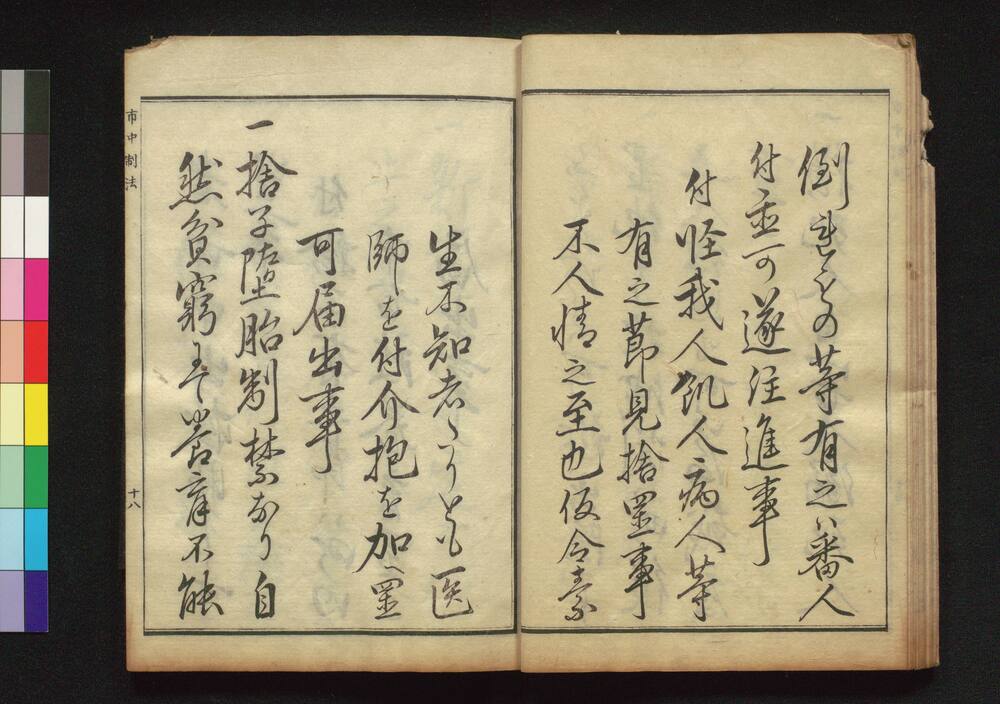 倒れもの等有之ハ番人
付置可遂注進事
付怪我人飢人病人等
有之節見捨置事
不人情之至也仮令素
生不知者たりとも医
師を付介抱を加へ置
可届出事
一捨子堕胎制禁なり自
然貧窮にて養育不能
市中制法
十八